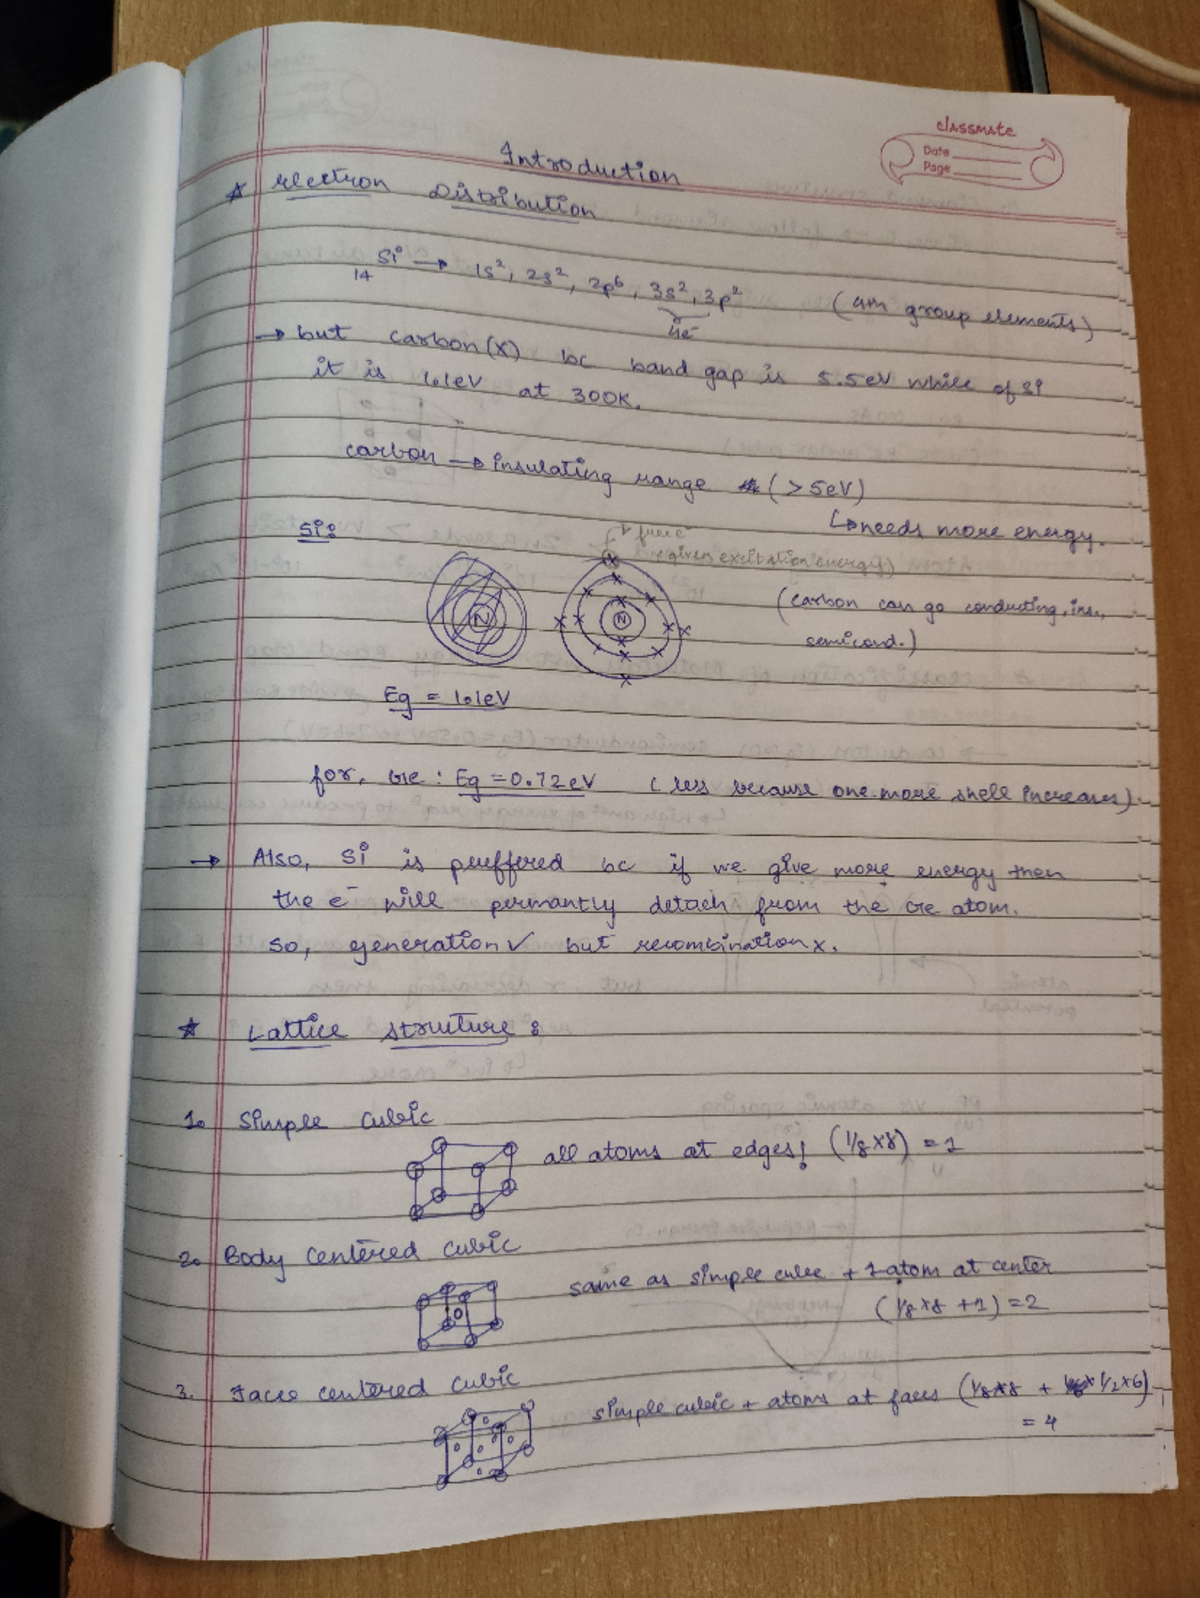 classmate
Date
Page
Introduction
☆ Electron Distribution
14 Si → 1s², 2s², 2p⁶, 3s², 3p² ( group elements)
4e⁻
→ but carbon(x) bc band gap is 5.5eV while of Si
it is 1.1eV at 300K.
carbon → insulating range (>5eV)
↳ needs more energy.
Si:
free e⁻
(given excitation energy)
N
N
(carbon can go conducting, ins.,
semicond.)
Eg = 1.1eV
for, Ge : Eg = 0.72eV (less because one more shell increases)
→ Also, Si is preffered bc if we give more energy then
the e⁻ will permantly detach from the Ge atom.
So, generation ✓ but recombination x.
☆ Lattice structure :
1. Simple cubic
all atoms at edges! (1/8 x 8) = 1
2. Body centered cubic
same as simple cube + 1 atom at center
(1/8 x 8 + 1) = 2
3. Face centered cubic
simple cubic + atoms at faces (1/8 x 8 + 1/2 x 6)
= 4